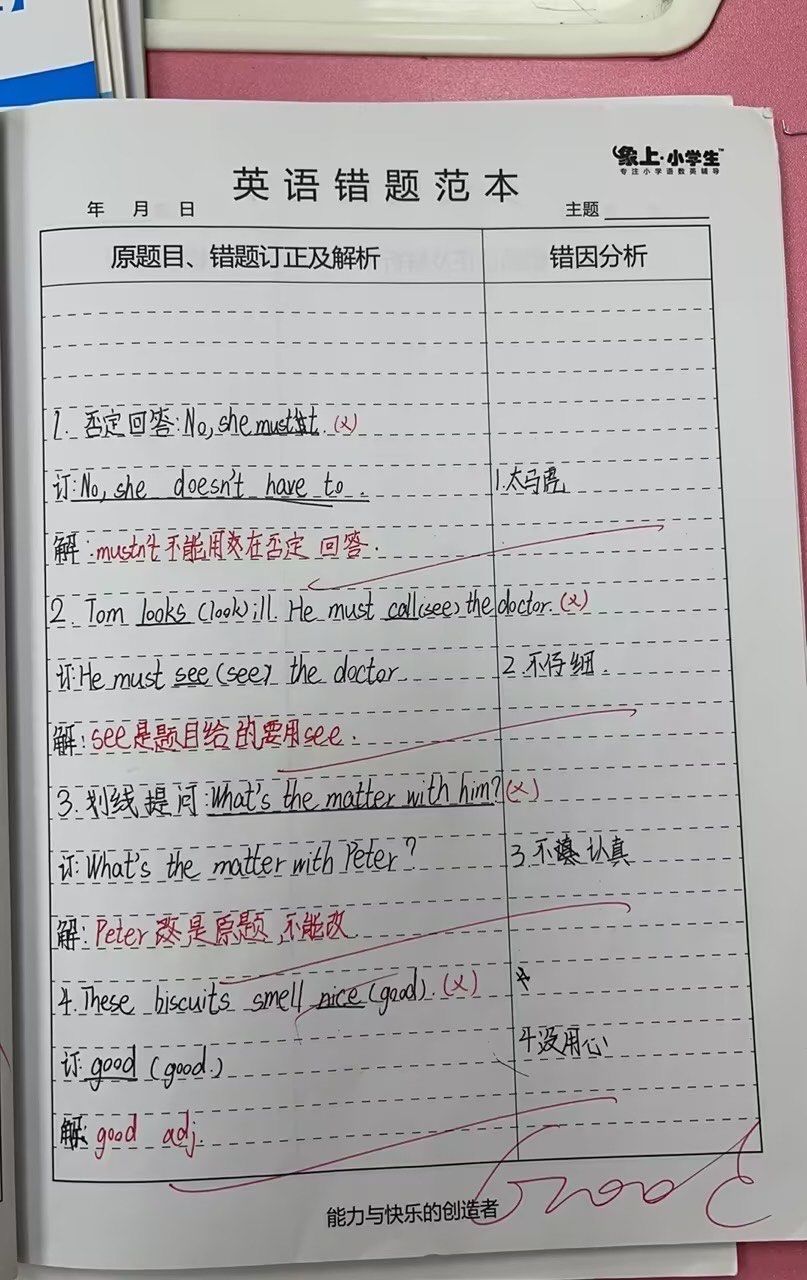 象上·小学生™
专注小学语数英辅导
英语错题范本
年 月 日
主题
原题目、错题订正及解析
错因分析
1. 否定回答: No, she must (×)
订: No, she doesn't have to.
1.太马虎
解: mustn't 不能用来在否定 回答.
2. Tom looks (look) ill. He must call (see) the doctor. (×)
订: He must see (see) the doctor
2.不仔细.
解: see是题目给的要用see.
3. 划线提问: What's the matter with him? (×)
订: What's the matter with Peter?
3.不认真
解: Peter 是原题, 不能改
4. These biscuits smell nice (good). (×)
订: good (good.)
4没用心
解: good adj.
Good
能力与快乐的创造者